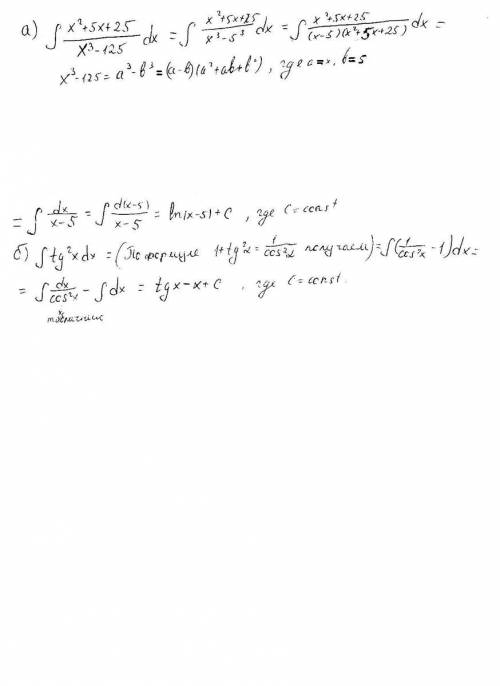 а) ∫ (x²+5x+25)/(x³-125) dx = ∫ (x²+5x+25)/(x³-5³) dx = ∫ (x²+5x+25)/((x-5)(x²+5x+25)) dx =
x³-125 = a³-b³ = (a-b)(a²+ab+b²), где a=x, b=5
= ∫ dx/(x-5) = ∫ d(x-5)/(x-5) = ln(x-5)+C, где C=const
б) ∫ tg²x dx = (По формуле 1+tg²x = 1/cos²x получаем) = ∫ (1/cos²x - 1)dx =
= ∫ dx/cos²x - ∫ dx = tgx-x+C, где C=const.